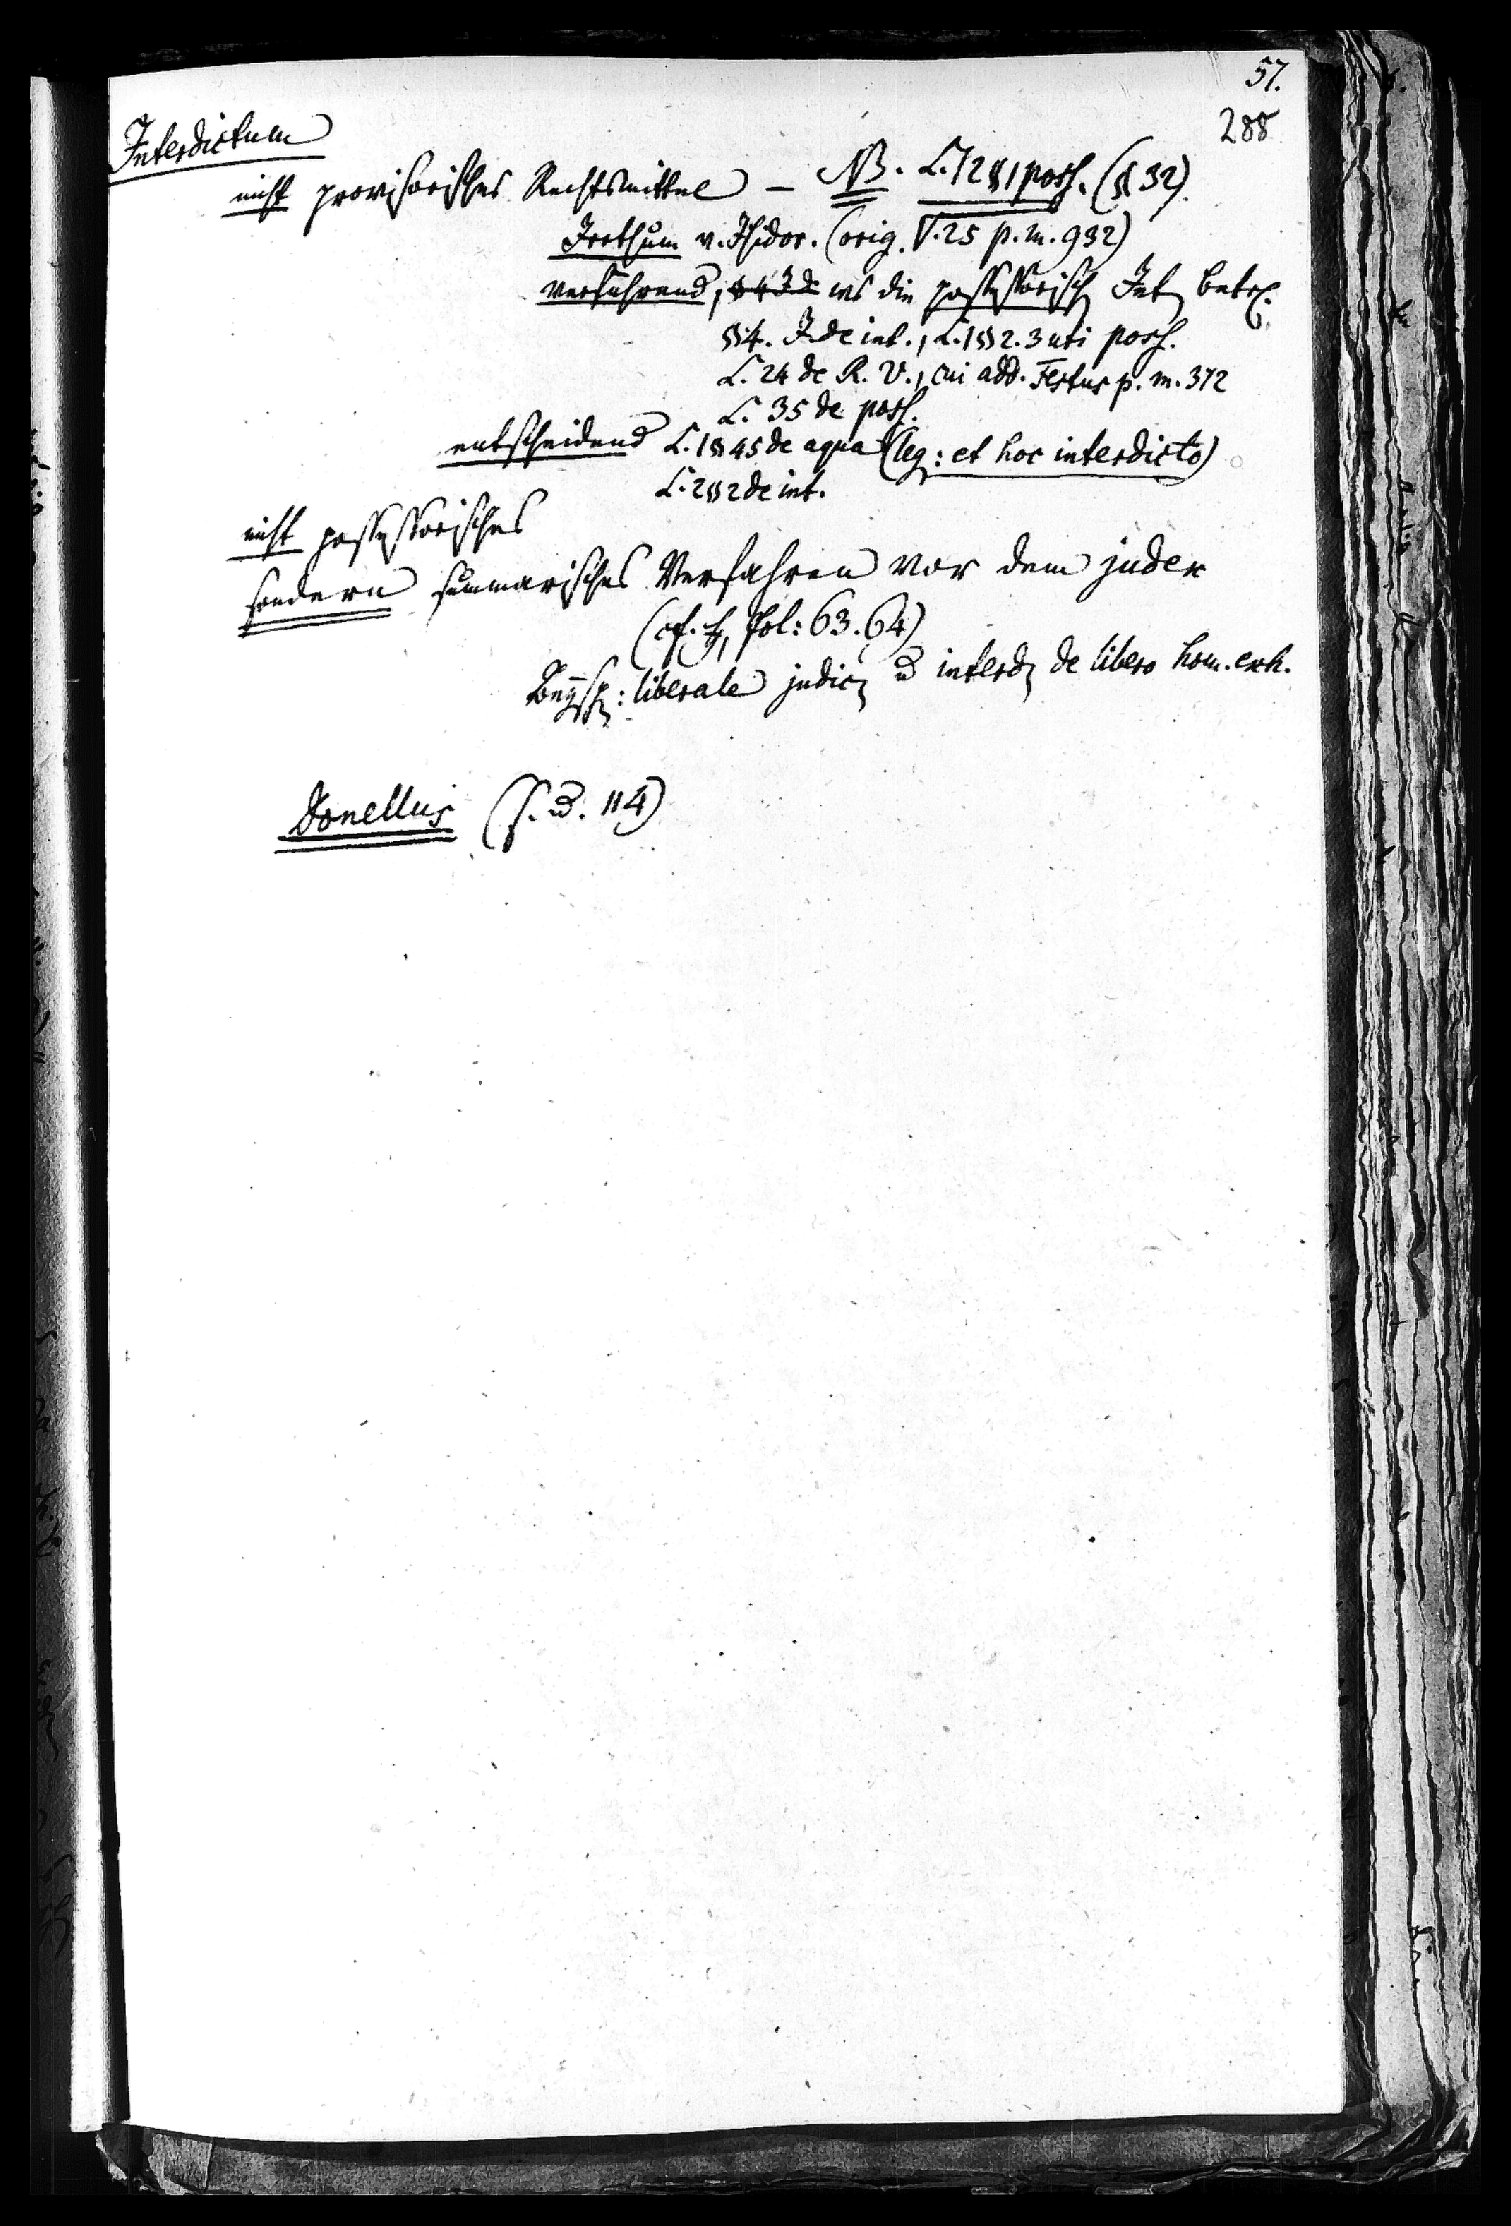 57.
288
Interdictum
nicht provisorisches Rechtsmittel – NB. L. 12 § 1 poss. (§ 32).
Irrthum v. Isidor. (orig. V. 25 p. m. 932)
verführend, ws die possessorisch Int betr.
§ 4. I. de int., L. 1 §§ 2. 3 uti poss.
L. 24 de R. V., cui add. Festus p. m. 372
L. 35 de poss.
entscheidend L. 1 § 45 de aqua (leg: et hoc interdicto)
L. 2 § 2 de int.
nicht possessorisches
sondern summarisches Verfahren vor dem judex
(cf. fol: 63. 64)
Beysp: liberale judic u interd de libero hom. exh.
Donellus (S. u. 114)